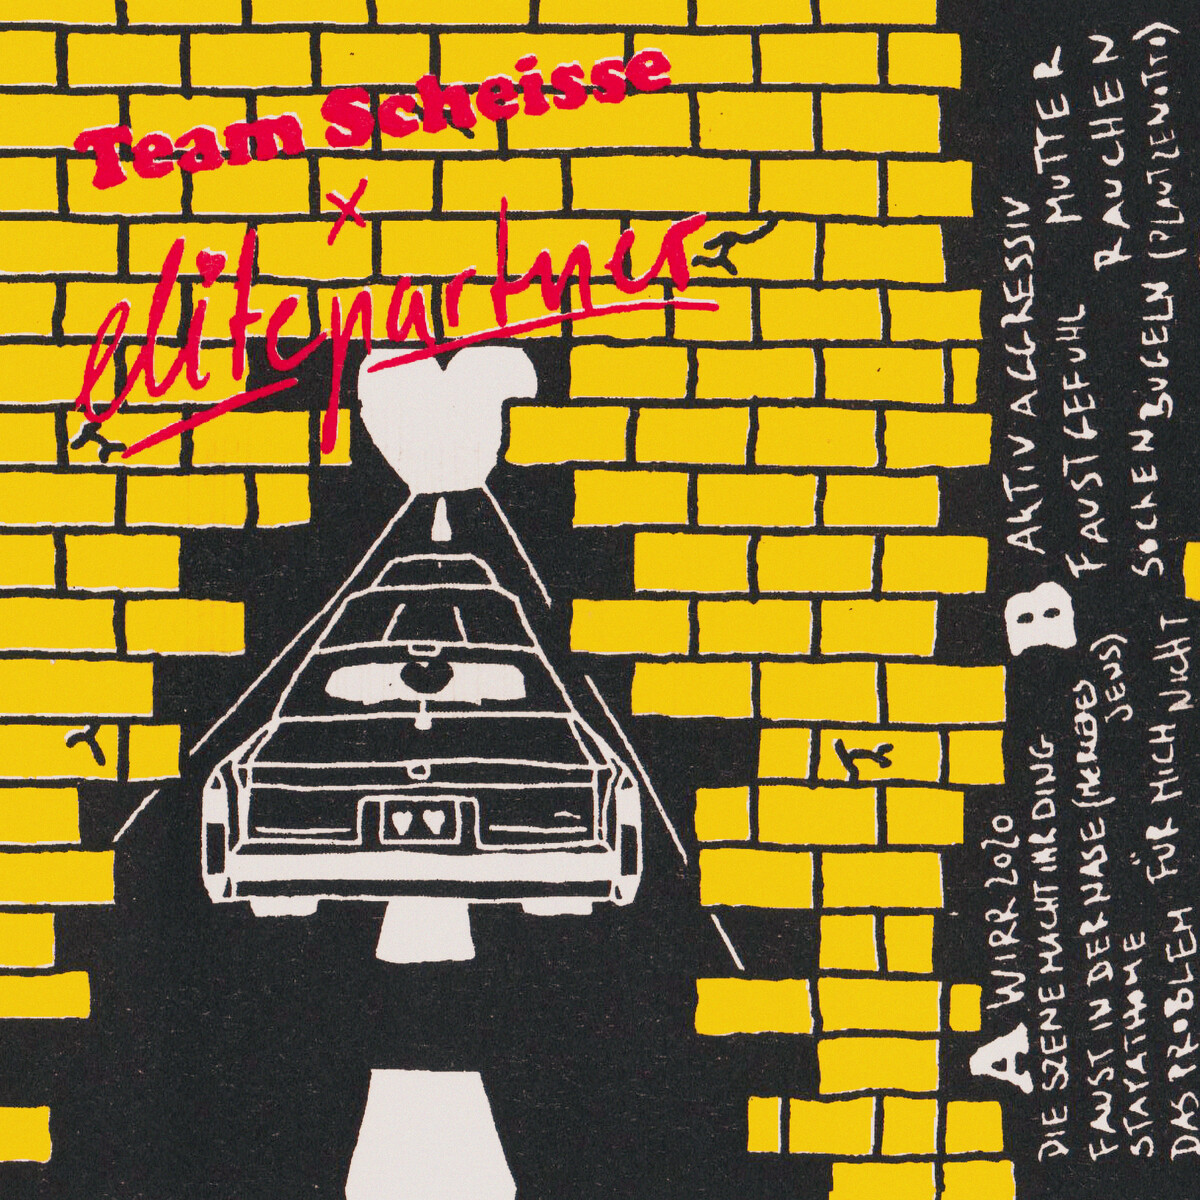 Team Scheisse
x
elitepartner
A WIRR 2020
DIE SZENE MACHT IHR DING
FAUST IN DER NASE (
JENS)
STAYATHOME
DAS PROBLEM FÜR MICH NICHT
B AKTIV AGGRESSIV
FAUSTGEFUHL
MUTTER
RAUCHEN
SOCKEN BUGELN (PLAUTZENOTTO)